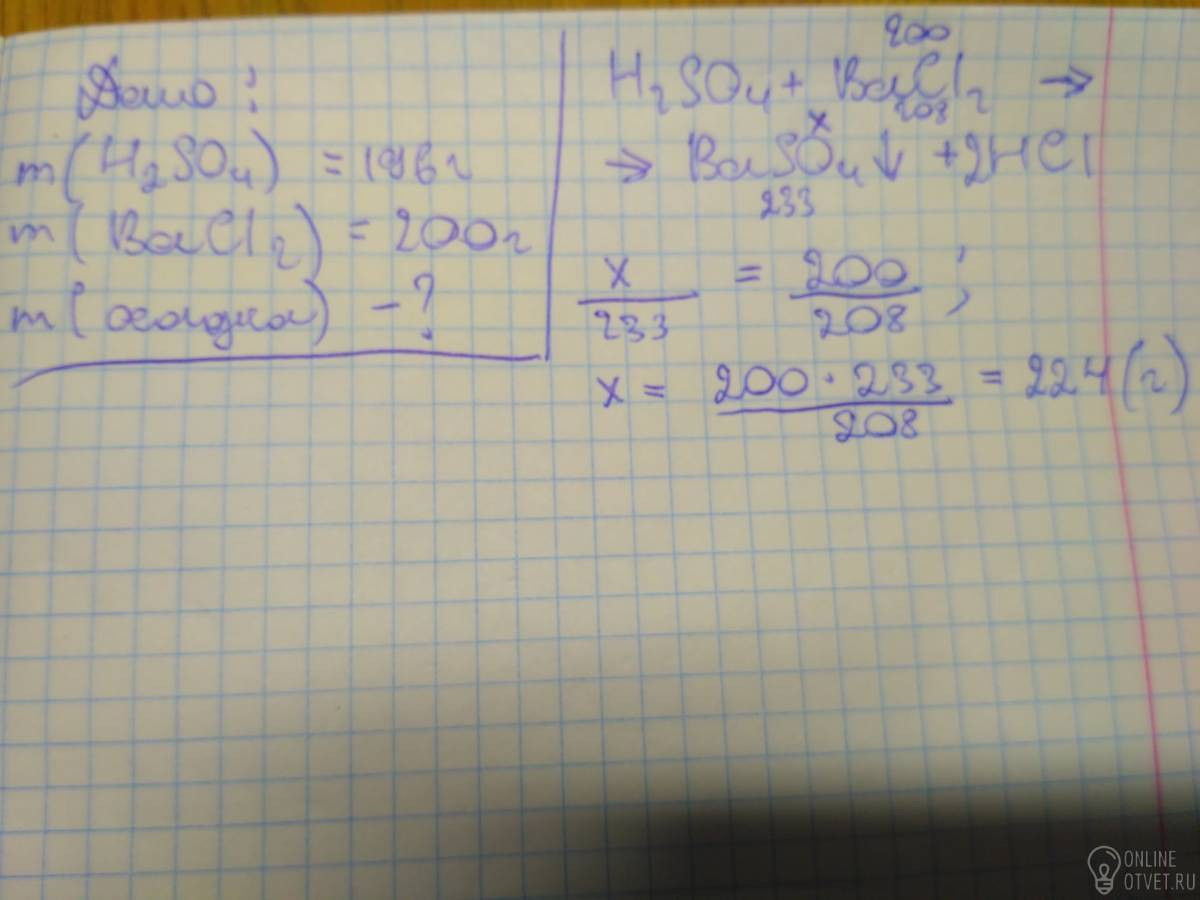 Дано:
m(H₂SO₄) = 196г
m(BaCl₂) = 200г
m(осадка) - ?
200
H₂SO₄ + BaCl₂ →
208
x
→ BaSO₄↓ + 2HCl
233
x/233 = 200/208;
x = 200·233/208 = 224(г)
ONLINE
OTVET.RU